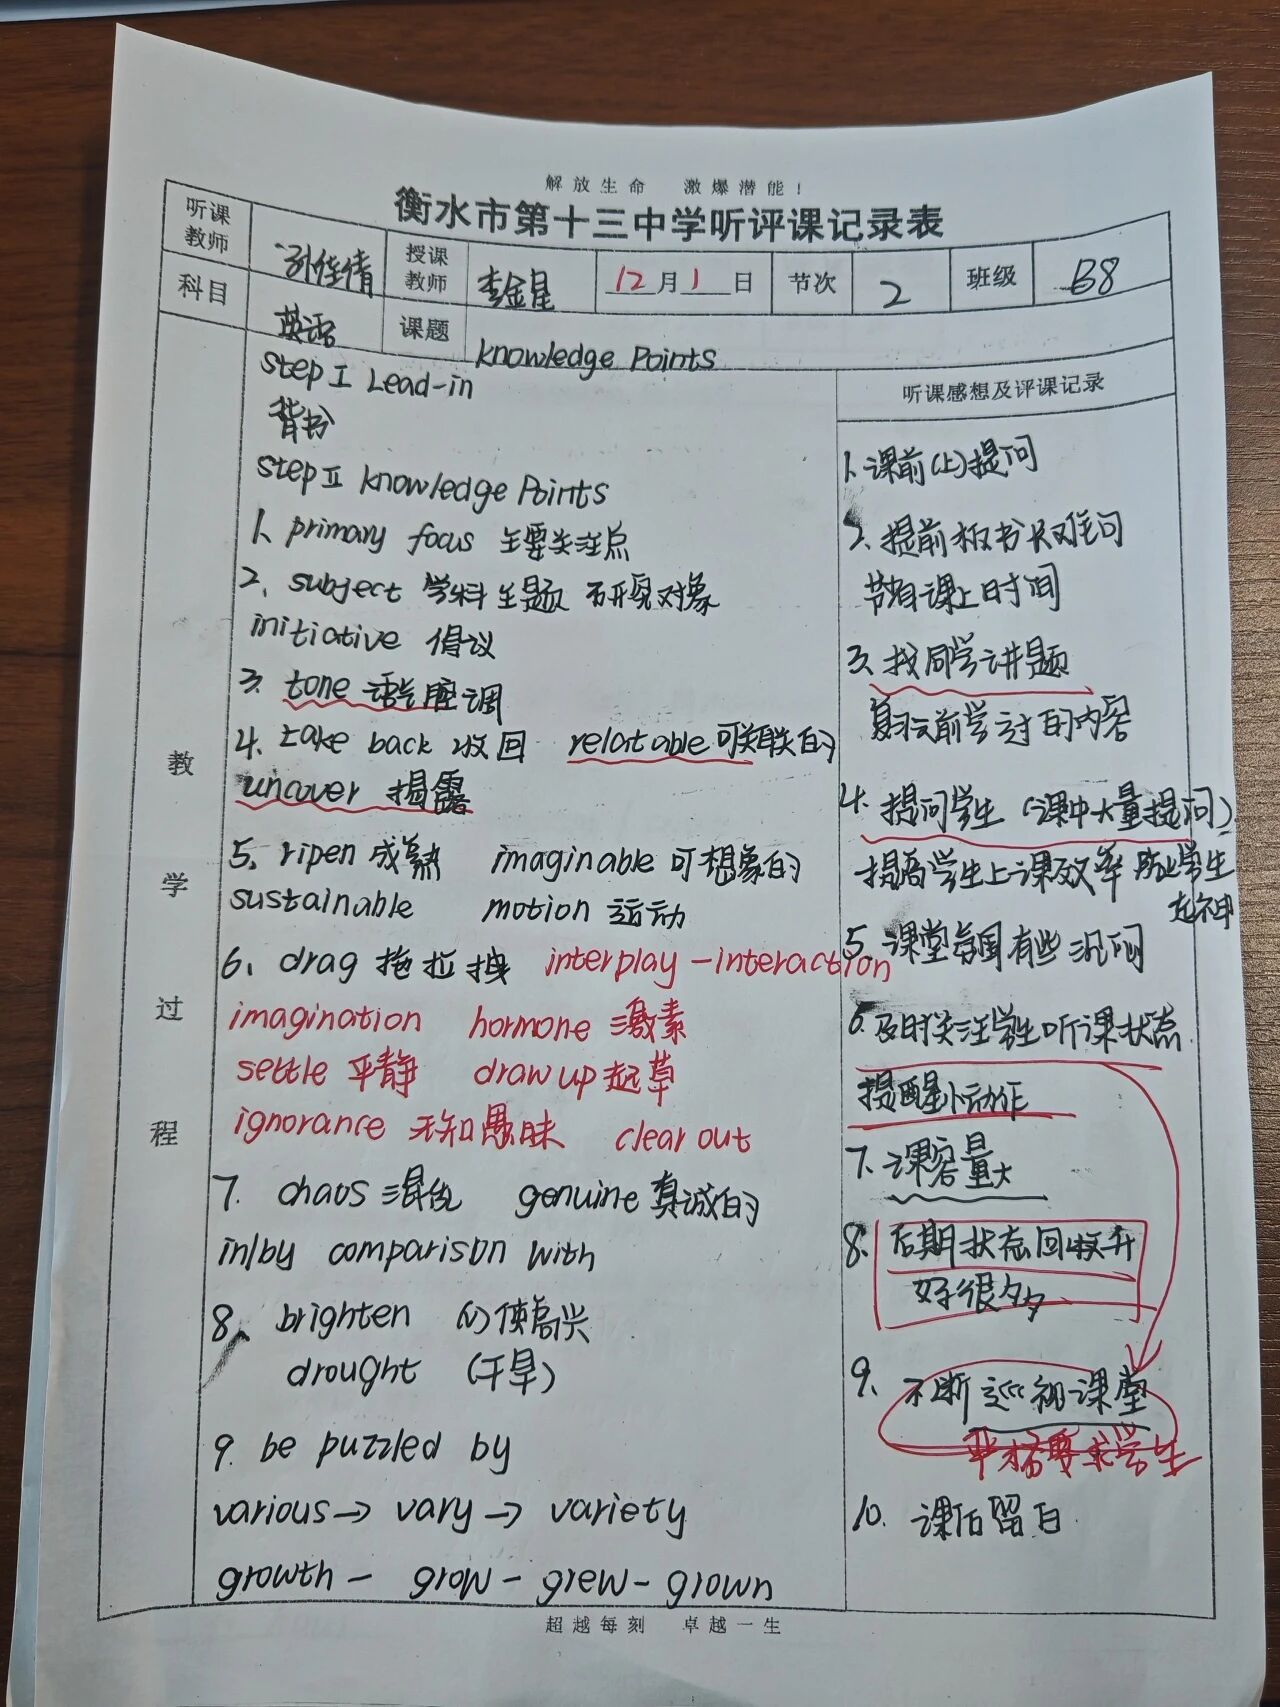 解放生命 激爆潜能！
衡水市第十三中学听评课记录表
听课教师 孙佳倩 授课教师 李金星 12月1日 节次 2 班级 B8
科目 英语 课题 knowledge Points
教学过程
step I Lead-in
背书
step II knowledge Points
1. primary focus 主要关注点
2. subject 学科 主题 研究对象
initiative 倡议
3. tone 语气腔调
4. take back 收回 relatable 可关联的
uncover 揭露
5. ripen 成熟 imaginable 可想象的
sustainable motion 运动
6. drag 拖拉拽 interplay - interaction
imagination hormone 激素
settle 平静 draw up 起草
ignorance 无知愚昧 clear out
7. chaos 混乱 genuine 真诚的
in/by comparison with
8. brighten (v) 使高兴
drought (干旱)
9. be puzzled by
various → vary → variety
growth - grow - grew - grown
听课感想及评课记录
1. 课前(上)提问
2. 提前板书
节省课上时间
3. 找同学讲题
复习之前学过的内容
4. 提问学生 (课中大量提问)
提高学生上课效率 防止学生
走神
5. 课堂氛围有些沉闷
6. 及时关注学生听课状态
提醒小动作
7. 课容量大
8. 后期状态回收
好很多
9. 不断巡视课堂
严格要求学生
10. 课后留白
超越每刻 卓越一生